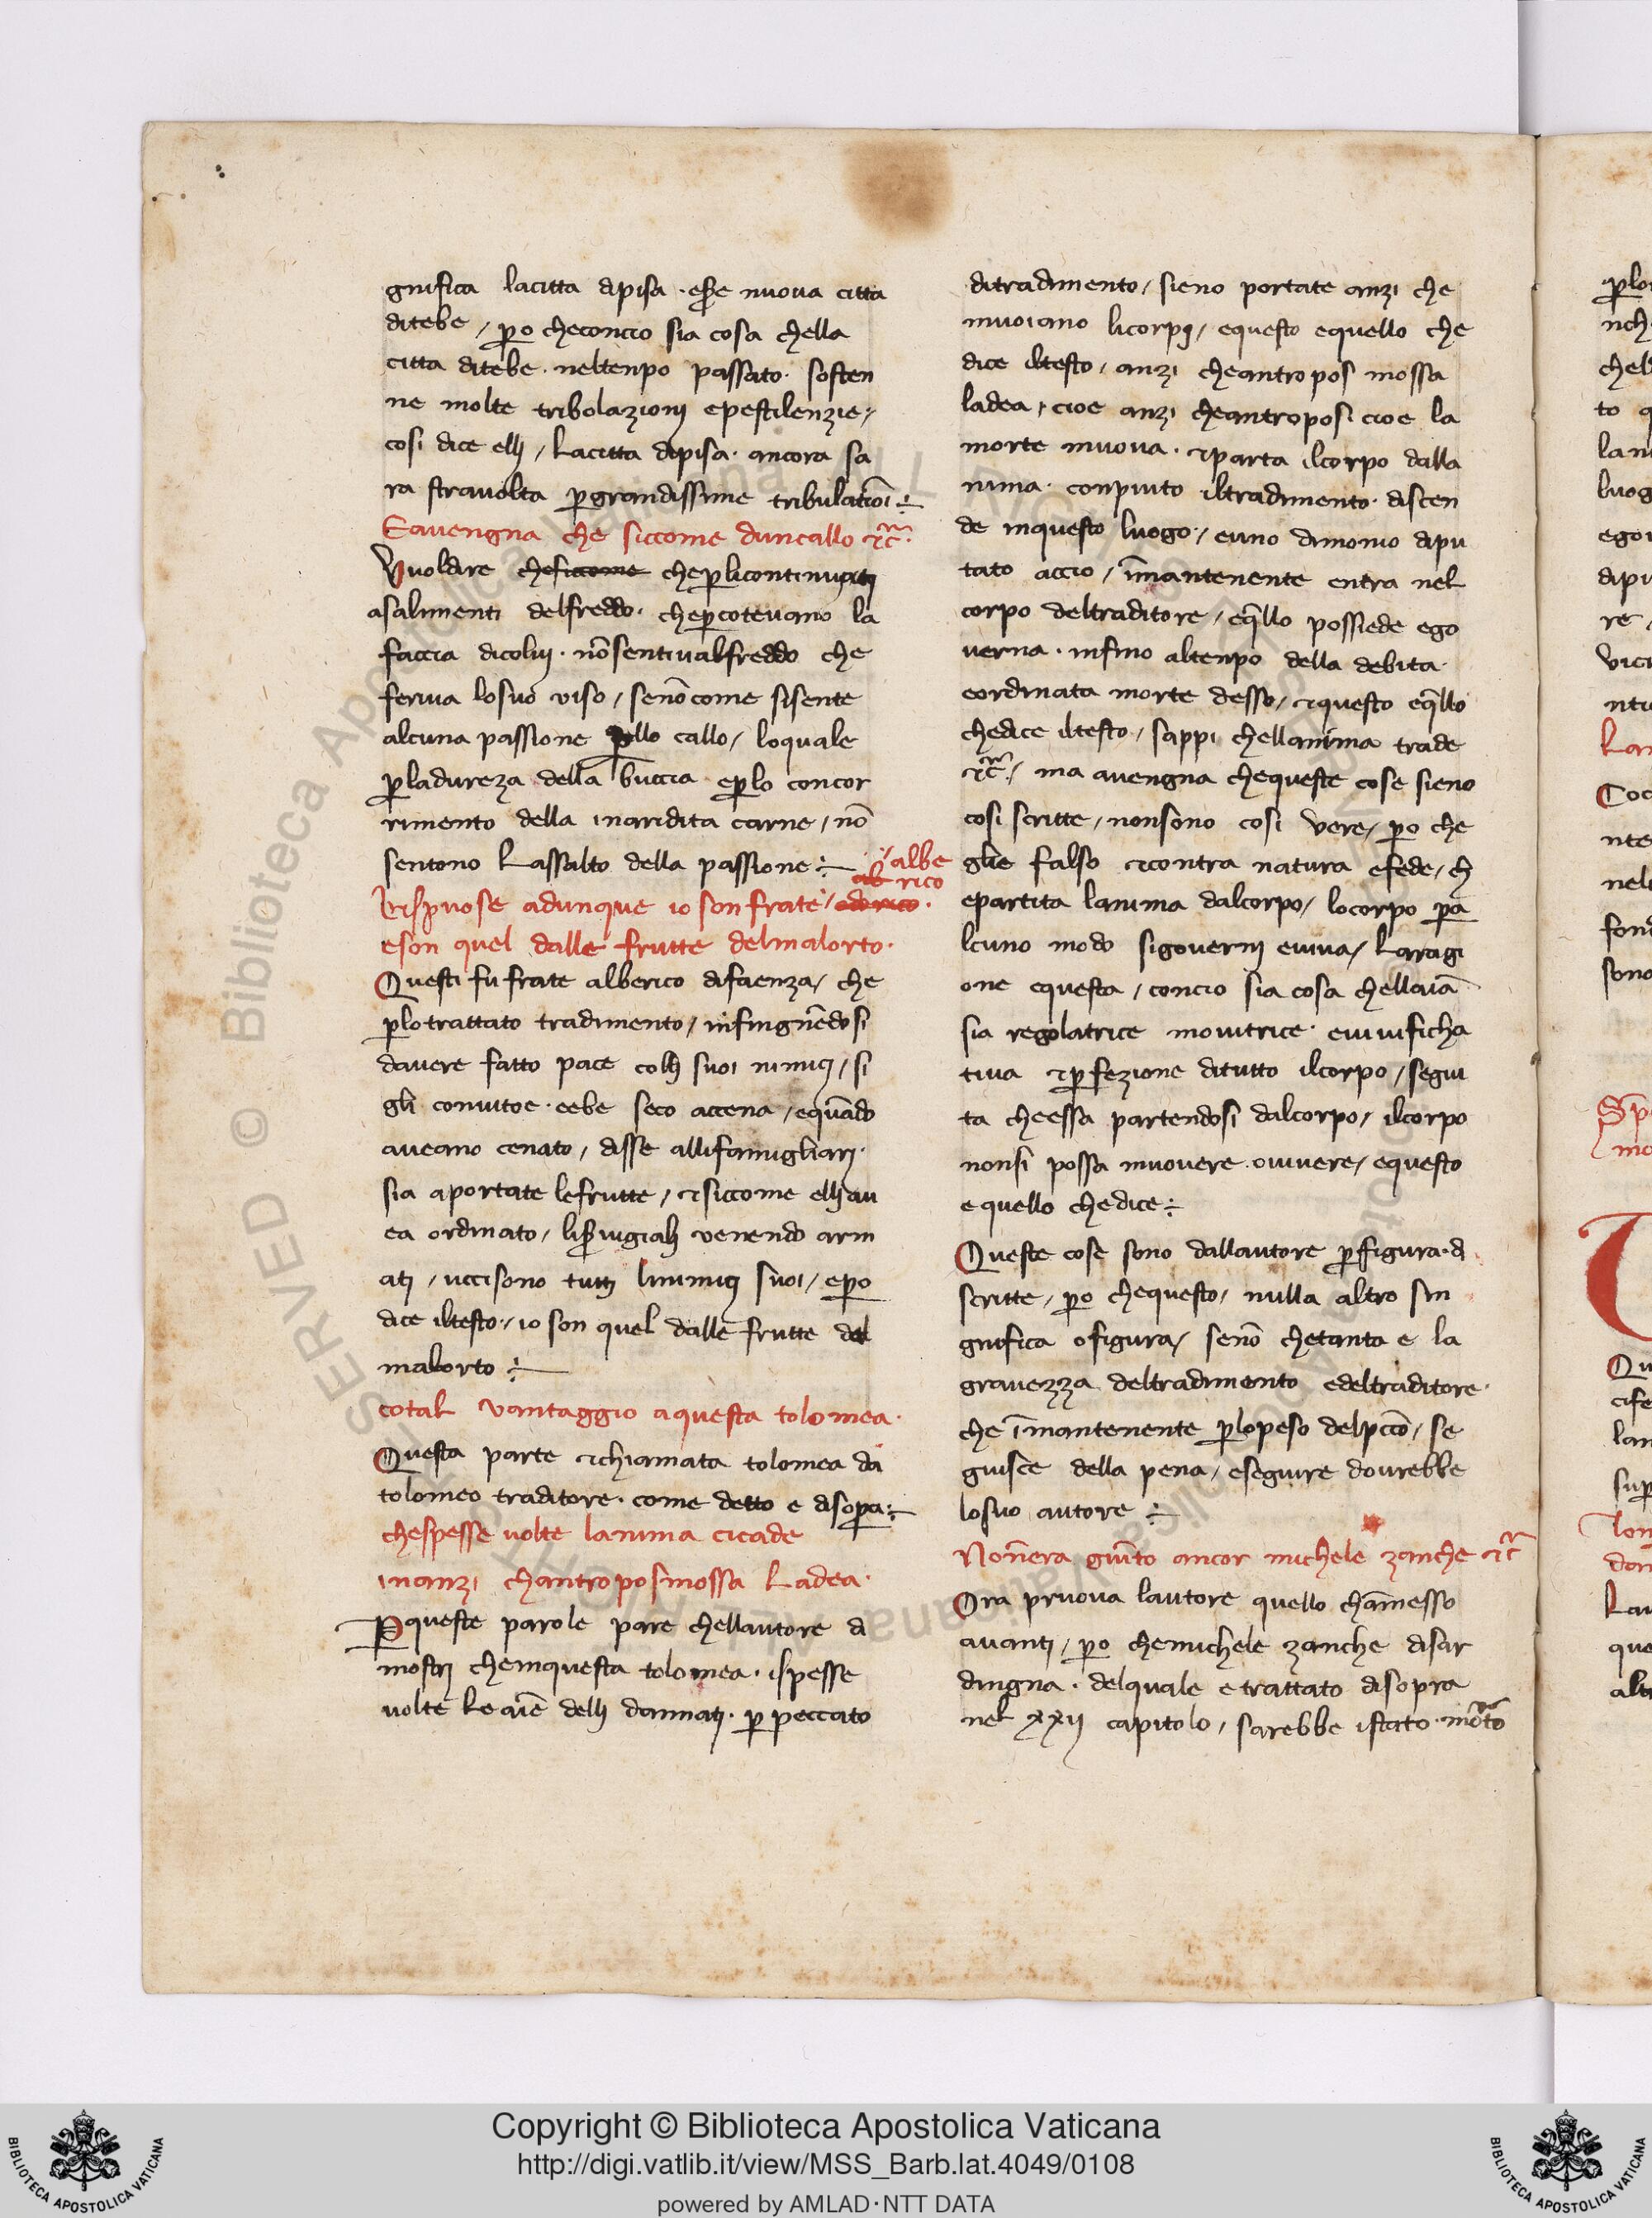 gnifica lacitta dipisa · esse nuova citta
ditebe / ꝑo checoncio sia cosa chella
citta ditebe · neltenpo passato · sosten
ne molte tribolazionj epestilenzie /
cosi dice ellj / Lacitta dipisa · ancora sa
ra stravolta ꝑgrandissime tribulatiōi ÷
Eavengna che siccome duncallo ⁊c̃ ·
Vuoldire chesiccome cheꝑlicontinuatj
asalimenti delfreddo · cheꝑcotevano la
faccia dicoluj · nōsentivalfreddo che
feriva losuo viso / senōcome sisente
alcuna passione ꝑllo callo / loquale
ꝑladureza della buccia eꝑlo concor
rimento della inaridita carne / nō
sentono Lassalto della passione ÷
albe
rico
Rispuose adunque io son frate /
eson quel dalle frutte delmalorto ·
Questi fu frate alberico difaenza / che
ꝑlotrattato tradimento / infingnēdosi
davere fatto pace collj suoi nimicj / si
gli convitoe · eebe seco accena / equādo
aveano cenato / disse allifamigliarj ·
sia aportate lefrutte / ⁊siccome ellj av
ea ordinato / liẜvigialj venendo arm
atj / uccisono tuttj linimicj suoi / eꝑo
dice iltesto / io son quel dalle frutte del
malorto ÷
cotaL vantaggio aquesta tolomea ·
Questa parte ⁊chiamata tolomea da
tolomeo traditore · come detto e disopra ÷
chespesse volte lanima cicade
inanzi chantroposmossa Ladea ·
Ꝑqueste parole pare chellautore di
mostrj cheinquesta tolomea · ispesse
volte Le aīe dellj dannatj · ꝑ peccato
ditradimento / sieno portate anzi che
muoiano licorpj / equesto equello che
dice iltesto / anzi cheantropos mossa
ladea / cioe anzi cheantroposi cioe la
morte muova · ⁊parta ilcorpo dalla
nima · conpiuto iltradimento · discen
de inquesto luogo / euno dimonio dipu
tato accio / īmantenente entra nel
corpo deltraditore / eq̄llo possiede ego
verna · infino altenpo della debita ·
eordinata morte desso / ⁊questo eq̄llo
chedice iltesto / sappi chellanima trade
⁊c̃ / ma avengna chequeste cose sieno
cosi scritte / nonsono cosi vere / ꝑo che
glie falso ⁊contra natura efede / ch
epartita lanima dalcorpo / locorpo ꝑa
lcuno modo sigovernj eviva / Laragi
one equesta / concio sia cosa chellaiā
sia regolatrice movitrice · evivificha
tiva ⁊ꝑfezione ditutto ilcorpo / segui
ta cheessa partendosi dalcorpo / ilcorpo
nonsi possa muovere · ovivere / equesto
equello chedice ÷
Queste cose sono dallautore ꝑfigura · di
scritte / ꝑo chequesto / nulla altro sin
gnifica ofigura / senō chetanta e la
gravezza deltradimento edeltraditore ·
che īmantenente ꝑlopeso delpc̄cō / se
guisce della pena / eseguire dovrebbe
losuo autore ÷
Nonera giūto ancor michele zanche ⁊c̃
Ora pruova lautore quello chāmesso
avantj / ꝑo chemichele zanche disar
dingna · delquale e trattato disopra
nel xxij capitolo / sarebbe istato · moˢto
Copyright © Biblioteca Apostolica Vaticana
http://digi.vatlib.it/view/MSS_Barb.lat.4049/0108
powered by AMLAD · NTT DATA
BIBLIOTECA APOSTOLICA VATICANA
BIBLIOTECA APOSTOLICA VATICANA